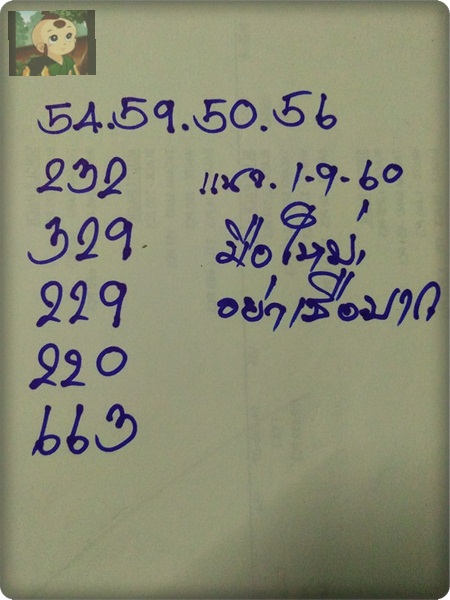 54.59.50.56
232 แนว.1-9-60
329 มือใหม่
229 อย่าเชื่อมาก
220
663